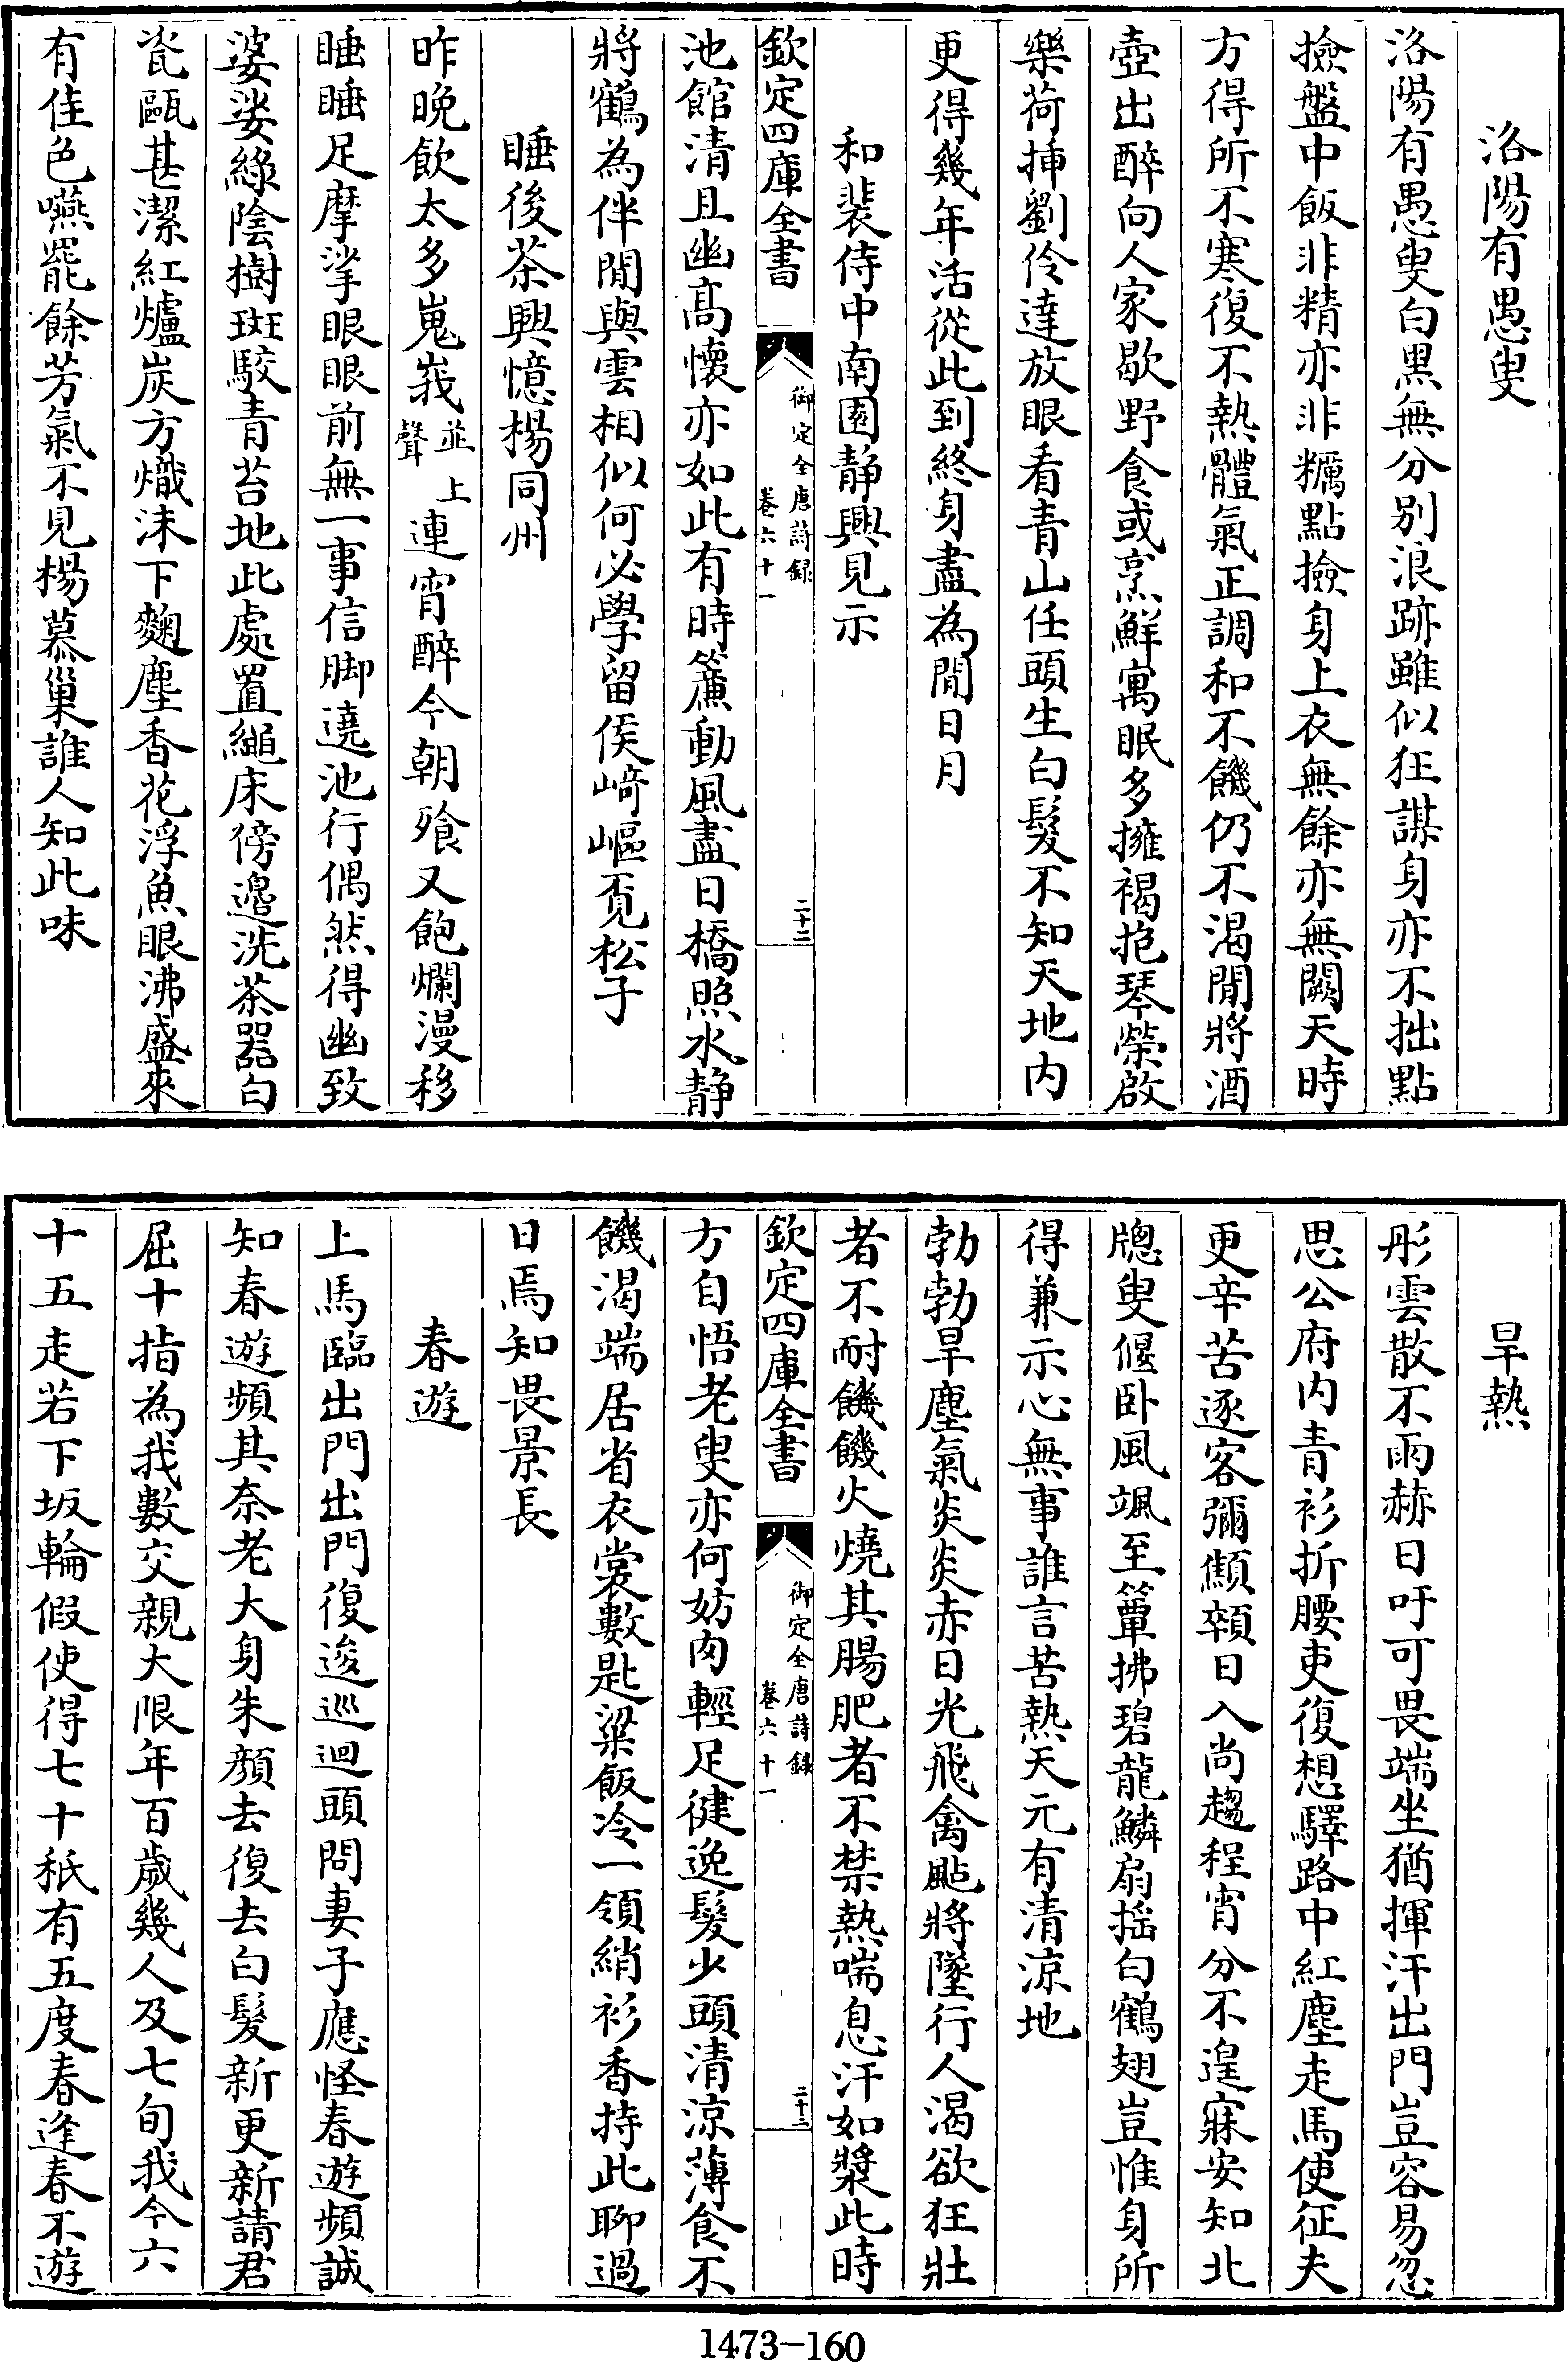 洛陽有愚叟
洛陽有愚叟白黒無分別浪跡雖似狂謀身亦不拙點
撿盤中飯非精亦非糲點撿身上衣無餘亦無闕天時
方得所不寒復不熱體氣正調和不饑仍不渴閒將酒
壺出醉向人家歇野食或烹鮮寓眠多擁褐抱琴榮啟
樂荷揷劉伶達放眼看青山任頭生白髮不知天地内
更得幾年活從此到終身盡為閒日月
和裴侍中南園静興見示
欽定四庫全書
御定全唐詩録
卷六十一
二十二
池館清且幽髙懷亦如此有時簾動風盡日橋照水静
將鶴為伴閒與雲相似何必學留侯崎嶇覓松子
睡後茶興憶楊同州
昨晚飲太多嵬峩並上聲連宵醉今朝飱又飽爛漫移
睡睡足摩挲眼眼前無一事信脚遶池行偶然得幽致
婆娑綠陰樹斑駮青苔地此處置繩床傍邉洗茶器白
瓷甌甚潔紅爐炭方熾沫下麴塵香花浮魚眼沸盛來
有佳色嚥罷餘芳氣不見楊慕巢誰人知此味
旱熱
彤雲散不雨赫日吁可畏端坐猶揮汗出門豈容易忽
思公府内青衫折腰吏復想驛路中紅塵走馬使征夫
更辛苦逐客彌顦顇日入尚趨程宵分不遑寐安知北
牎叟偃卧風颯至簟拂碧龍鱗扇揺白鶴翅豈惟身所
得兼示心無事誰言苦熱天元有清涼地
勃勃旱塵氣炎炎赤日光飛禽颭將墜行人渴欲狂壯
者不耐饑饑火燒其腸肥者不禁熱喘息汗如漿此時
欽定四庫全書
御定全唐詩録
卷六十一
二十三
方自悟老叟亦何妨肉輕足健逸髮少頭清涼薄食不
饑渴端居省衣裳數匙粱飯冷一領綃衫香持此聊過
日焉知畏景長
春遊
上馬臨出門出門復逡巡迴頭問妻子應怪春遊頻誠
知春遊頻其奈老大身朱顔去復去白髮新更新請君
屈十指為我數交親大限年百歳幾人及七旬我今六
十五走若下坂輪假使得七十秖有五度春逢春不遊
1473-160